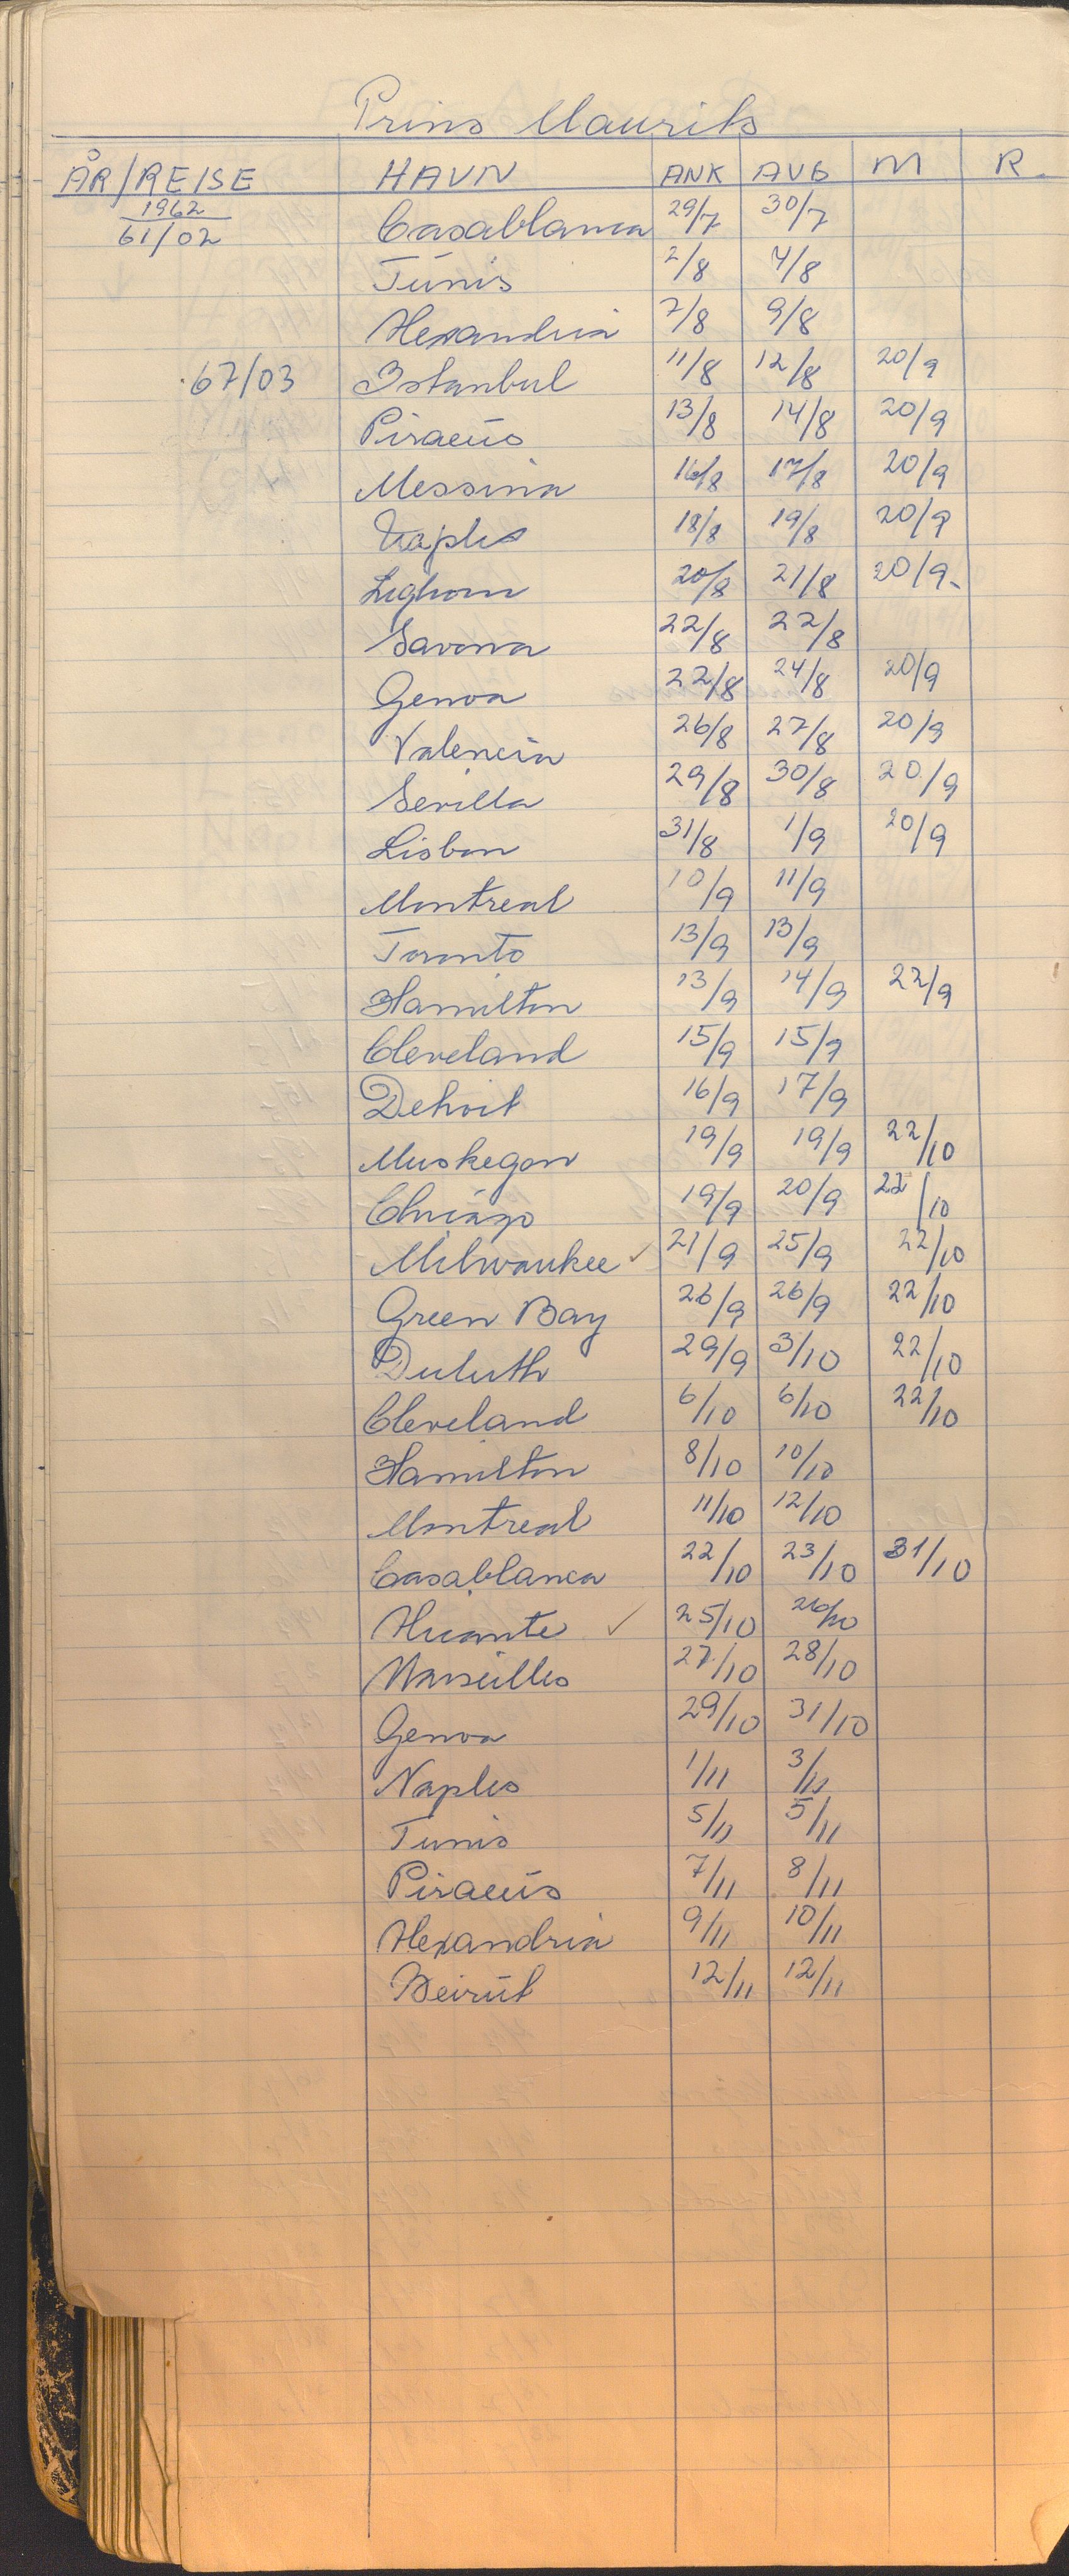 Prins Maurits
ÅR/REISE HAVN ANK AVG M R.
1962
61/02 Casablanca 29/7 30/7
Tunis 2/8 4/8
Alexandria 7/8 9/8
67/03 Istanbul 11/8 12/8 20/9
Piraeus 13/8 14/8 20/9
Messina 16/8 17/8 20/9
Naples 18/8 19/8 20/9
Leghorn 20/8 21/8 20/9
Savona 22/8 22/8
Genoa 22/8 24/8 20/9
Valencia 26/8 27/8 20/9
Sevilla 29/8 30/8 20/9
Lisbon 31/8 1/9 20/9
Montreal 10/9 11/9
Toronto 13/9 13/9
Hamilton 13/9 14/9 22/9
Cleveland 15/9 15/9
Detroit 16/9 17/9
Muskegon 19/9 19/9 22/10
Chicago 19/9 20/9 22/10
Milwaukee ✓ 21/9 25/9 22/10
Green Bay 26/9 26/9 22/10
Duluth 29/9 3/10 22/10
Cleveland 6/10 6/10 22/10
Hamilton 8/10 10/10
Montreal 11/10 12/10
Casablanca 22/10 23/10 31/10
Alicante ✓ 25/10 26/10
Marseilles 27/10 28/10
Genoa 29/10 31/10
Naples 1/11 3/11
Tunis 5/11 5/11
Piraeus 7/11 8/11
Alexandria 9/11 10/11
Beirut 12/11 12/11